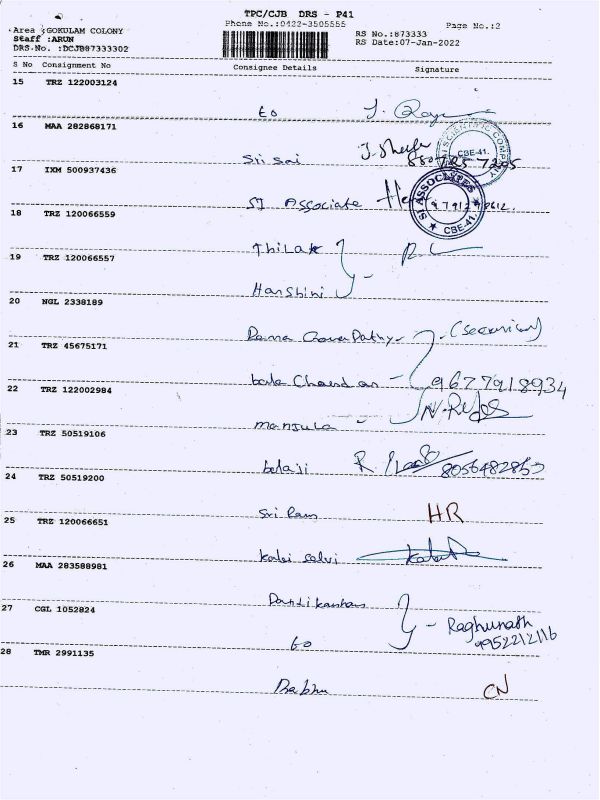 TPC/CJB DRS - P41
Phone No.:0422-3505555
Page No.:2
Area :GOKULAM COLONY
Staff :ARUN
DRS-No. :DCJB87333302
RS No.:873333
RS Date:07-Jan-2022
S No Consignment No Consignee Details Signature
15 TRZ 122003124
to
16 MAA 282868171
Sri Sai
CBE-41.
17 IXM 500937436
SI Associate
SI ASSOCIATES
CBE-41.
18 TRZ 120066559
Thilak
19 TRZ 120066557
Harshini
20 NGL 2338189
(Security)
21 TRZ 45675171
bala Chandran 9677918934
22 TRZ 122002984
Manjula
23 TRZ 50519106
balaji 8056482853
24 TRZ 50519200
Sri Ram HR
25 TRZ 120066651
kalai selvi
26 MAA 283588981
27 CGL 1052824
Raghunath
9952212116
to
28 TMR 2991135
Prabhu CN